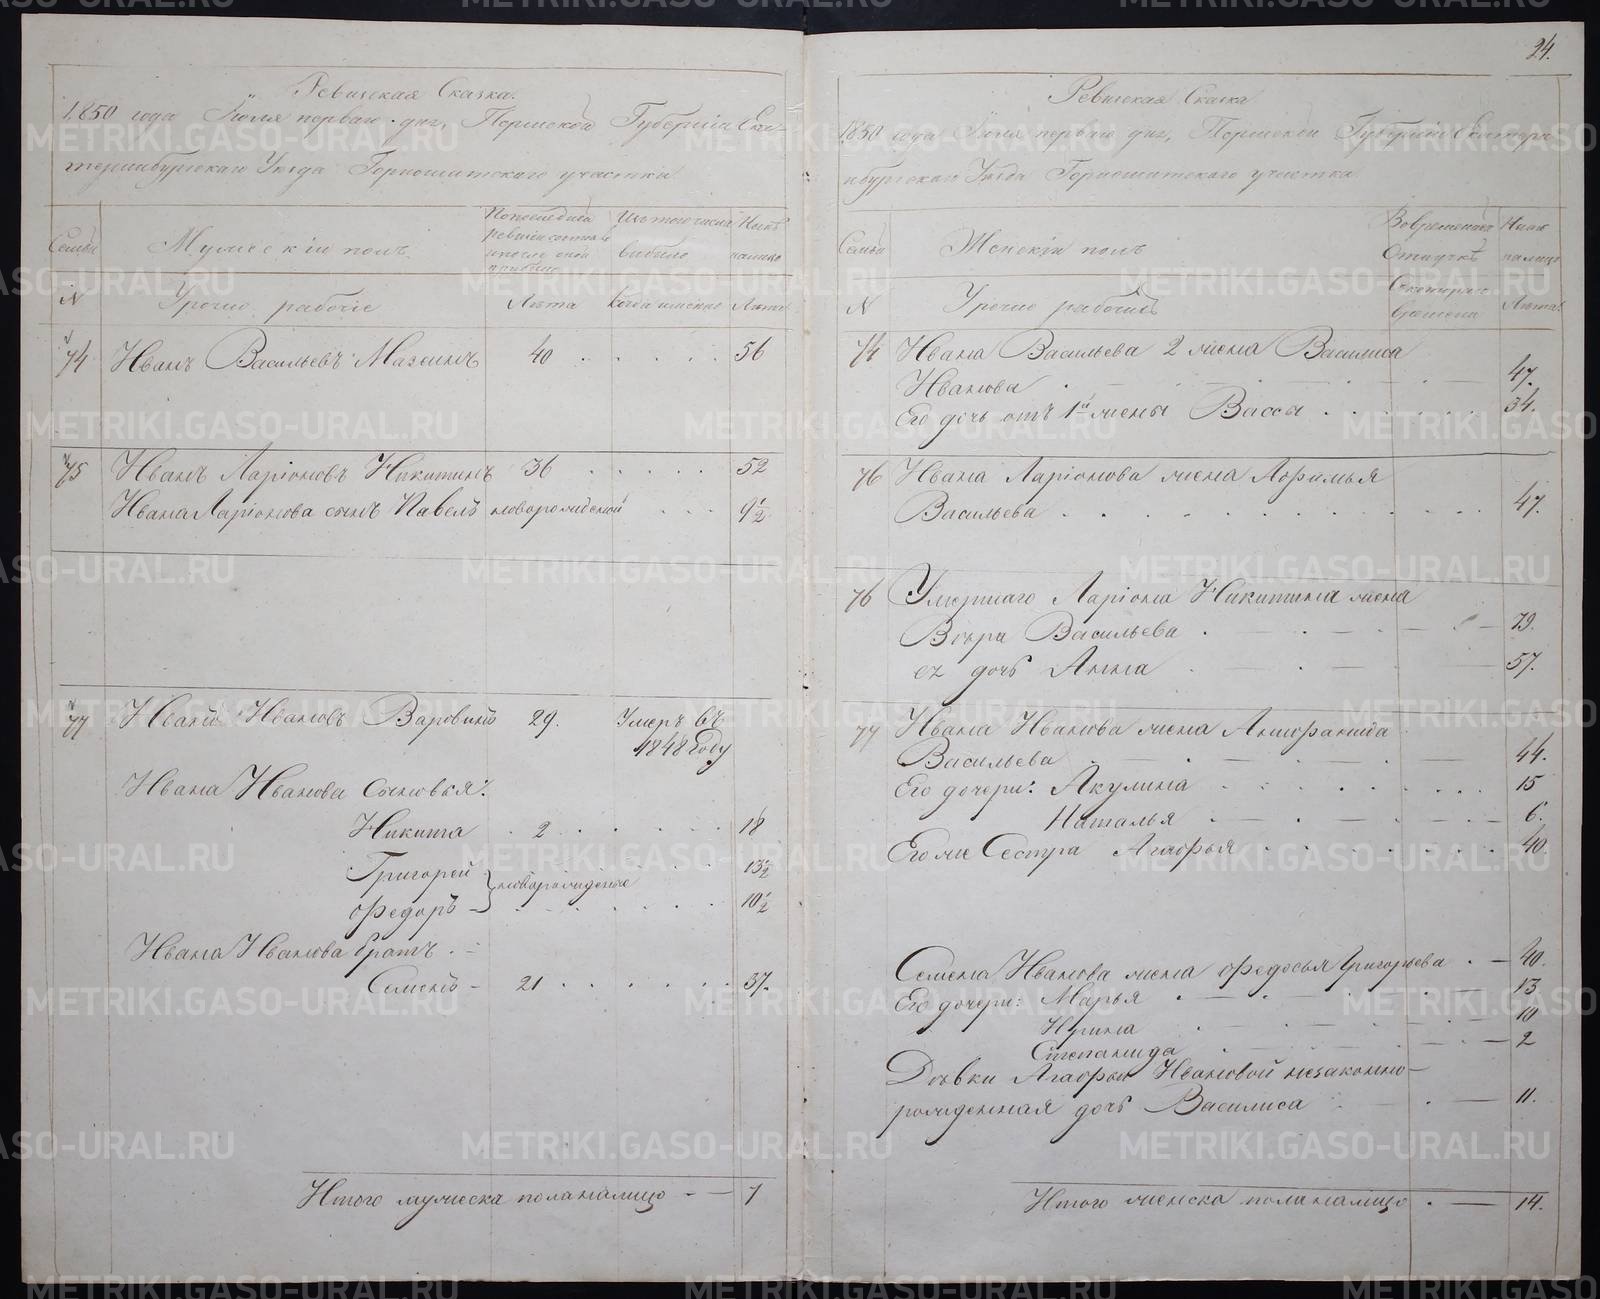 24.
Ревизская Сказка.
1850 года Июля перваго дня, Пермской Губерніи Ека-
теринбургскаго Уезда Горнощитскаго участка
Семьи
Мужескій полъ
По последней
ревизіи состояло
и после оной
прибыло
Изъ того числа
выбыло
Ныне
налицо
N
Урочно рабочіе
Лѣта
Когда именно
Лѣта
74 Иванъ Васильевъ Мазеинъ 40 . . . . . 56
75 Иванъ Ларіоновъ Никитинъ 36 . . . . . 52
Ивана Ларіонова сынъ Павелъ новорожденой . . . 9½
77 Иванъ Ивановъ Варовинъ 29. Умеръ въ
1848 Году
Ивана Иванова сыновья:
Никита . 2 . . . . . . 18
Григорей новорожденые . . . 13½
Федоръ . . . . . . 10½
Ивана Иванова братъ
Семенъ 21 . . . . . . 37.
Итого мужеска пола налицо — 7
Ревизская Сказка
1850 года Июля перваго дня, Пермской Губерніи Екатери
нбургскаго Уезда Горнощитскаго участка
Семьи
Женскій полъ
Во временной
Отлучкѣ
Ныне
налицо
N
Урочно рабочихъ
С котораго
времени
Лѣта
74 Ивана Васильева 2 жена Василиса
Иванова . — — — — 47.
Его дочь отъ 1й жены Васса . . . . . . 34.
76 Ивана Ларіонова жена Афимья
Васильева . . . . . . . . . . 47.
76 Умершаго Ларіона Никитина жена
Вѣра Васильева . — . — . — — 79.
ея дочь Анна . — . — — 57.
77 Ивана Иванова жена Анфанида
Васильева . — . — . — . — 44.
Его дочери: Акулина . . . . . . . . 15
Наталья . — . — . — — 6.
Его же Сестра Агафья . . . . . . . . 40.
Семена Иванова жена Федосья Григорьева . — 40.
Его дочери: Марья . — . — . — 13
Ирина . — . — — 10
Степанида . — . — . — 2
Дѣвки Агафьи Ивановой незаконно-
рожденная дочь Василиса . — 11.
Итого женска пола налицо . — 14.
METRIKI.GASO-URAL.RU